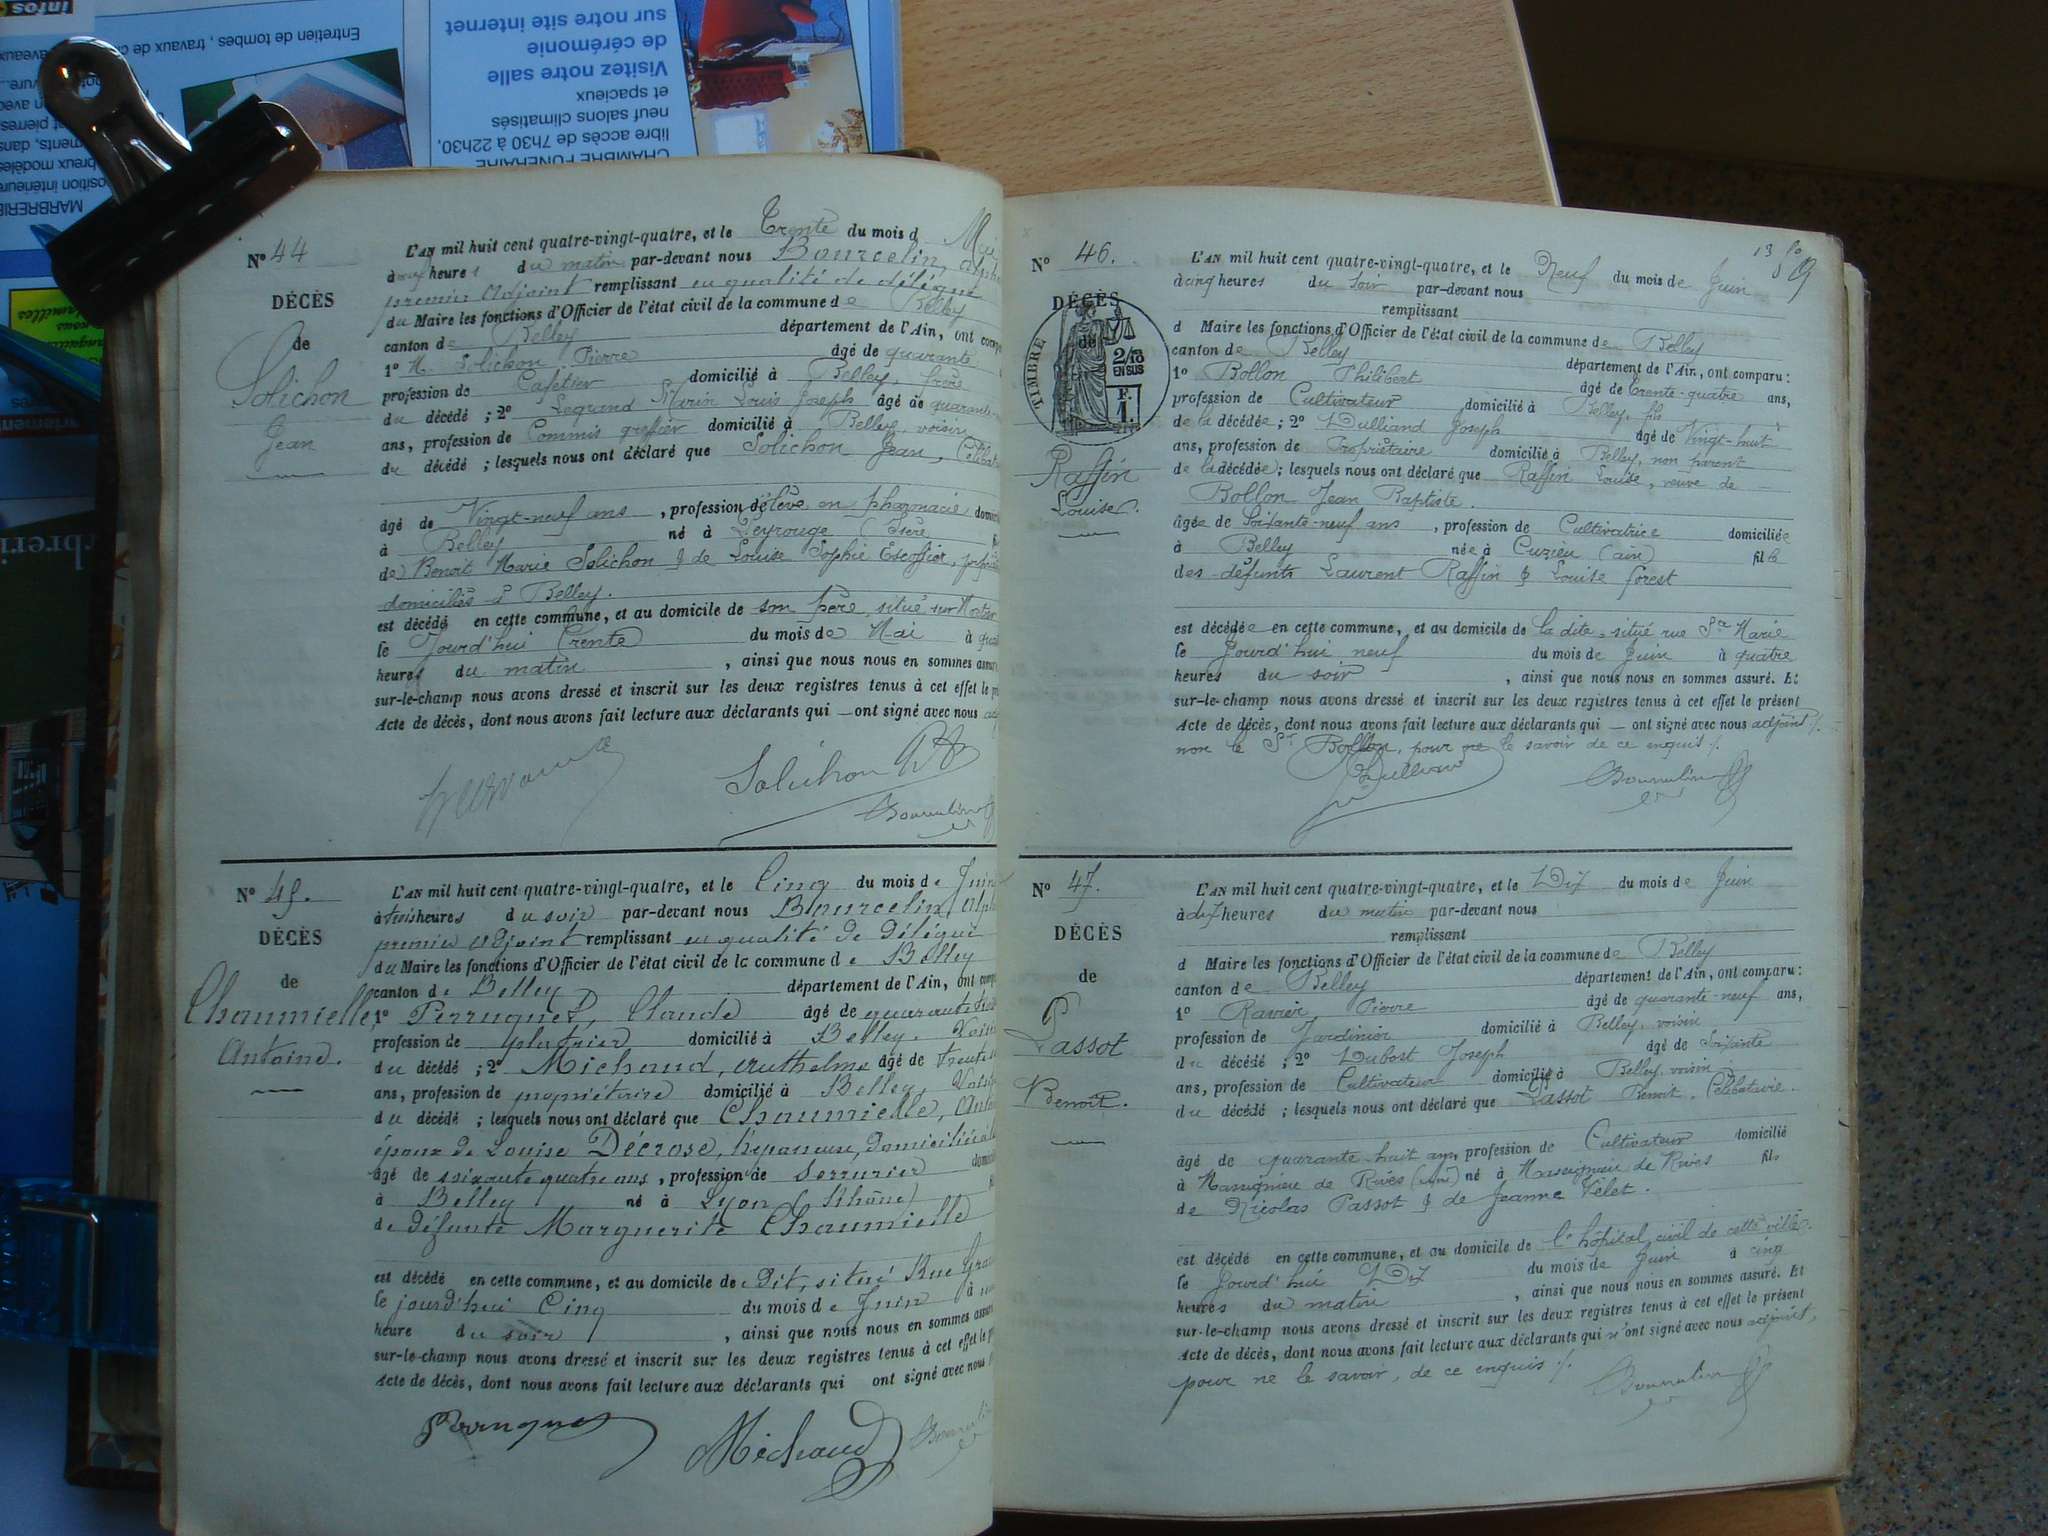 infos
Entretien de tombes, travaux de
MARBRERIE
CHAMBRE FUNÉRAIRE
libre accès de 7h30 à 22h30,
neuf salons climatisés
et spacieux
Visitez notre salle
de cérémonie
sur notre site internet
N° 44
DÉCÈS
de
Solichon
Jean
L'AN mil huit cent quatre-vingt-quatre, et le Trente du mois d Mai
à heures du matin par-devant nous Bourcelin,
premier adjoint remplissant en qualité de délégué
du Maire les fonctions d'Officier de l'état civil de la commune de Belley
canton de Belley département de l'Ain, ont
1° M. Solichon Pierre âgé de quarante
profession de Cafetier domicilié à Belley, frère
du décédé ; 2° Legrand Marin Louis Joseph âgé de quarante
ans, profession de Commis greffier domicilié à Belley, voisin
du décédé ; lesquels nous ont déclaré que Solichon Jean,
âgé de Vingt-neuf ans, profession élève en pharmacie
à Belley né à (Isère)
de Benoit Marie Solichon & de Louise Sophie Escoffier,
domiciliés à Belley.
est décédé en cette commune, et au domicile de son père, situé
le Jourd'hui Trente du mois de Mai à
heures du matin, ainsi que nous nous en sommes
sur-le-champ nous avons dressé et inscrit sur les deux registres tenus à cet effet le
Acte de décès, dont nous avons fait lecture aux déclarants qui — ont signé avec nous
Solichon
Bourcelin
N° 45.
DÉCÈS
de
Chaumielle
Antoine.
L'AN mil huit cent quatre-vingt-quatre, et le Cinq du mois de Juin
à trois heures du soir par-devant nous Bourcelin,
premier adjoint remplissant en qualité de Délégué
du Maire les fonctions d'Officier de l'état civil de la commune de Belley
canton de Belley département de l'Ain, ont
1° Perruquet, Claude âgé de quarante
profession de plâtrier domicilié à Belley,
du décédé ; 2° Michaud, Anthelme âgé de
ans, profession de propriétaire domicilié à Belley,
du décédé ; lesquels nous ont déclaré que Chaumielle,
époux de Louise Décrose,
âgé de soixante quatre ans, profession de serrurier
à Belley né à Lyon (Rhône)
de défunte Marguerite Chaumielle
est décédé en cette commune, et au domicile de dit, situé Rue
le jourd'hui Cinq du mois de Juin à
heure du soir, ainsi que nous nous en sommes
sur-le-champ nous avons dressé et inscrit sur les deux registres tenus à cet effet le
Acte de décès, dont nous avons fait lecture aux déclarants qui ont signé avec nous
Perruquet
Michaud
13
N° 46.
DÉCÈS
de
TIMBRE
2/10
EN SUS
F.
1.
Raffin
Louise.
L'AN mil huit cent quatre-vingt-quatre, et le Neuf du mois de Juin
à cinq heures du soir par-devant nous
remplissant
d Maire les fonctions d'Officier de l'état civil de la commune de Belley
canton de Belley département de l'Ain, ont comparu :
1° Bollon Philibert âgé de trente-quatre ans,
profession de Cultivateur domicilié à Belley, fils
de la décédée ; 2° Dulliand Joseph âgé de Vingt-huit
ans, profession de Propriétaire domicilié à Belley, non parent
de la décédée ; lesquels nous ont déclaré que Raffin Louise, veuve de
Bollon Jean Baptiste.
âgée de Soixante-neuf ans, profession de Cultivatrice domiciliée
à Belley née à Cuzieu (ain) fille
des défunts Laurent Raffin & Louise Forest
est décédée en cette commune, et au domicile de la dite, situé rue Ste Marie
le Jourd'hui neuf du mois de Juin à quatre
heures du soir, ainsi que nous nous en sommes assuré. Et
sur-le-champ nous avons dressé et inscrit sur les deux registres tenus à cet effet le présent
Acte de décès, dont nous avons fait lecture aux déclarants qui — ont signé avec nous adjoint ./.
non le Sr Bollon, pour ne le savoir de ce enquis ./.
Dulliand
Bourcelin
N° 47.
DÉCÈS
de
Passot
Benoît.
L'AN mil huit cent quatre-vingt-quatre, et le Dix du mois de Juin
à dix heures du matin par-devant nous
remplissant
d Maire les fonctions d'Officier de l'état civil de la commune de Belley
canton de Belley département de l'Ain, ont comparu :
1° Ravier Pierre âgé de quarante-neuf ans,
profession de Jardinier domicilié à Belley, voisin
du décédé ; 2° Dubost Joseph âgé de Soixante
ans, profession de Cultivateur domicilié à Belley, voisin
du décédé ; lesquels nous ont déclaré que Passot Benoit, Célibataire.
âgé de quarante-huit ans, profession de Cultivateur domicilié
à Massignieu de Rives (ain) né à Massignieu de Rives fils
de Nicolas Passot & de Jeanne Velet.
est décédé en cette commune, et au domicile de l'hôpital civil de cette ville.
le Jourd'hui Dix du mois de Juin à cinq
heures du matin, ainsi que nous nous en sommes assuré. Et
sur-le-champ nous avons dressé et inscrit sur les deux registres tenus à cet effet le présent
Acte de décès, dont nous avons fait lecture aux déclarants qui n'ont signé avec nous adjoint,
pour ne le savoir, de ce enquis ./.
Bourcelin